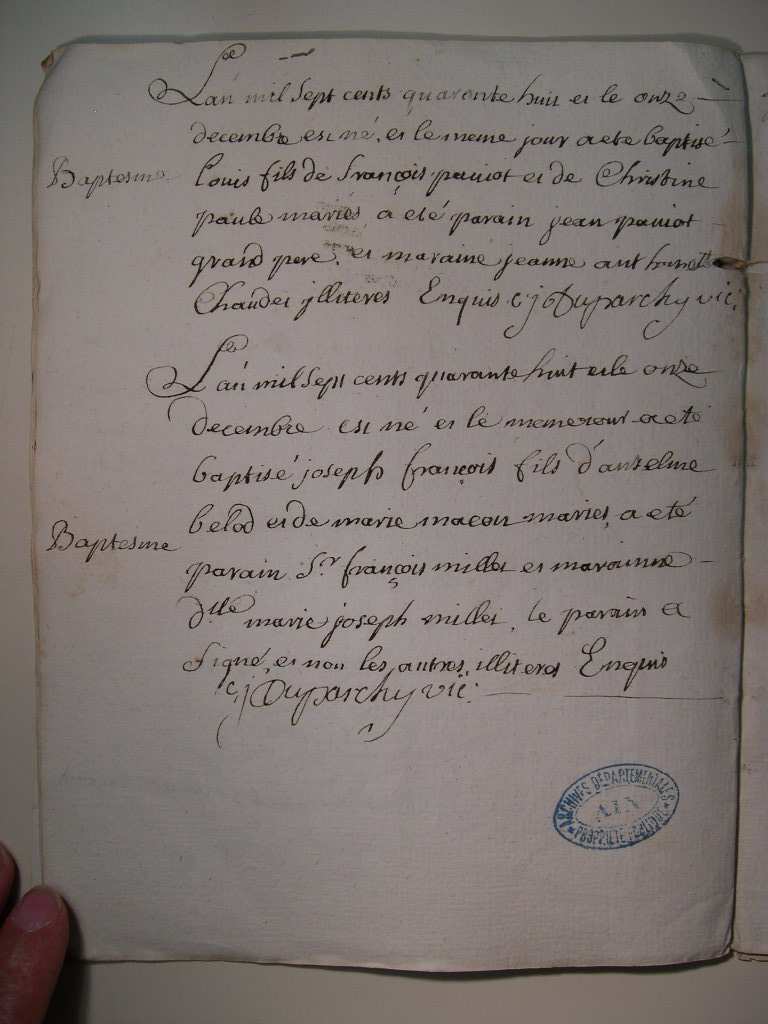 L'an mil sept cents quarante huit et le onze
decembre est né, et le meme jour a ete baptisé
Baptesme
Louis fils de françois paviot et de Christine
paule mariés a eté parain jean paviot
grand pere, et maraine jeanne anthoinette
Chaudet jlliteres Enquis c j Duparchy vic:
L'an mil sept cents quarante huit et le onze
decembre est né et le meme jour a eté
baptisé joseph françois fils d'anselme
belod et de marie macon mariés, a eté
Baptesme
parain Sr françois millet et marainne
dlle marie joseph millet, le parain a
signé, et non les autres illiteres Enquis
c j Duparchy vic:
ARCHIVES DEPARTEMENTALES
AIN
PROPRIETE PUBLIQUE